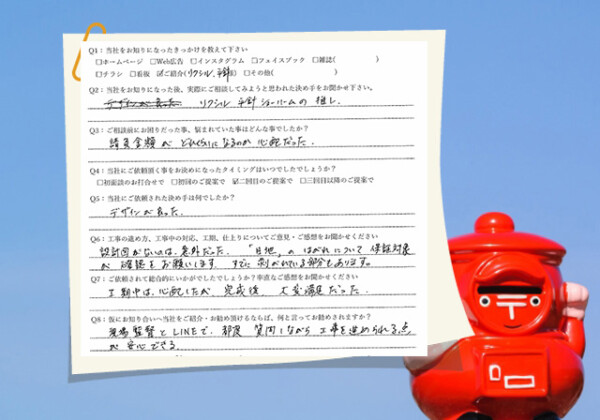 Q1：当社をお知りになったきっかけを教えて下さい
□ホームページ □Web広告 □インスタグラム □フェイスブック □雑誌( )
□チラシ □看板 ☑ご紹介(リクシル、平針様) □その他( )
Q2：当社をお知りになった後、実際にご相談してみようと思われた決め手をお聞かせ下さい。
リクシル 平針ショールームの推し。
Q3：ご相談前にお困りだった事、悩まれていた事はどんな事でしたか？
請負金額がどれくらいになるのか心配だった。
Q4：当社にご依頼頂く事をお決めになったタイミングはいつでしたでしょうか？
□初面談のお打合せで □初回のご提案で ☑二回目のご提案で □三回目以降のご提案で
Q5：当社にご依頼された決め手は何でしたか？
デザインが良った。
Q6：工事の進め方、工事中の対応、工期、仕上りについてご意見・ご感想をお聞かせください
設計図がないのは、意外だった。「目地」のはがれについて保証対象
か確認をお願いします。すでに剥がれている部分もあります。
Q7：ご依頼されて総合的にいかがでしたでしょうか？率直なご感想をお聞かせください
工期中は、心配したが、完成後、大変満足だった。
Q8：仮にお知り合いへ当社をご紹介・お勧め頂けるならば、何と言ってお勧めされますか？
現場監督とLINEで、都度、質問しながら工事を進められる点
が安心できる。